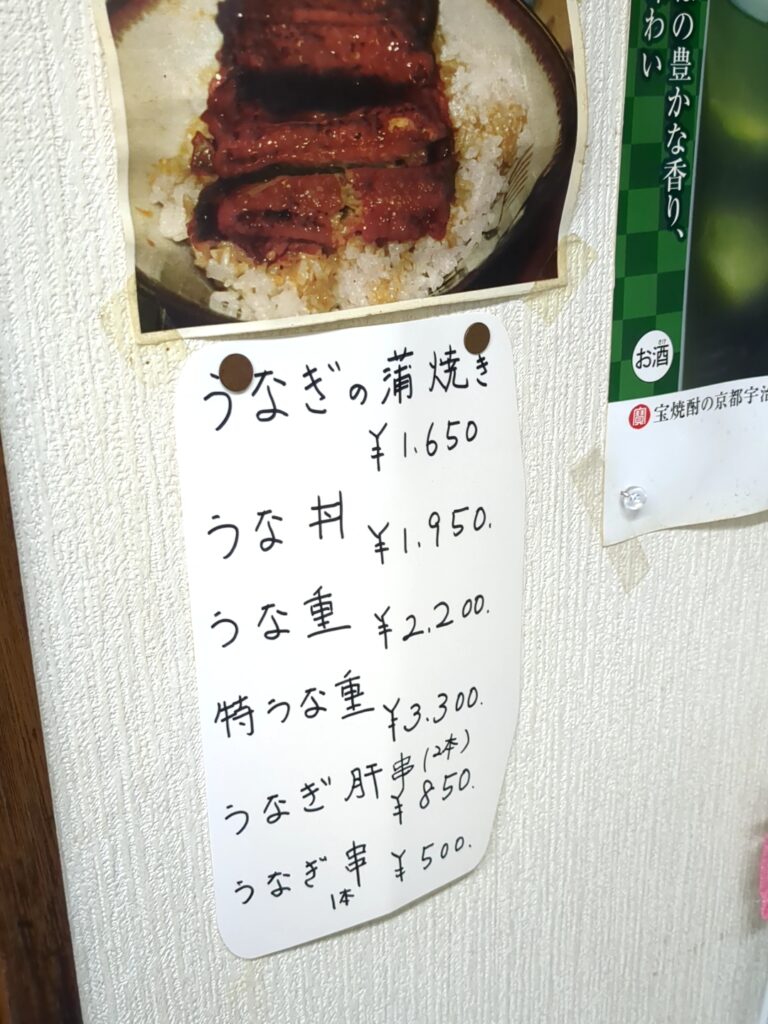 うなぎの蒲焼き
¥1.650
うな丼 ¥1.950.
うな重 ¥2.200.
特うな重 ¥3.300.
うなぎ肝串(2本)
¥850.
うなぎ串 ¥500.
1本
の豊かな香り、
わい
お酒
さけ
寶 宝焼酎の京都宇治